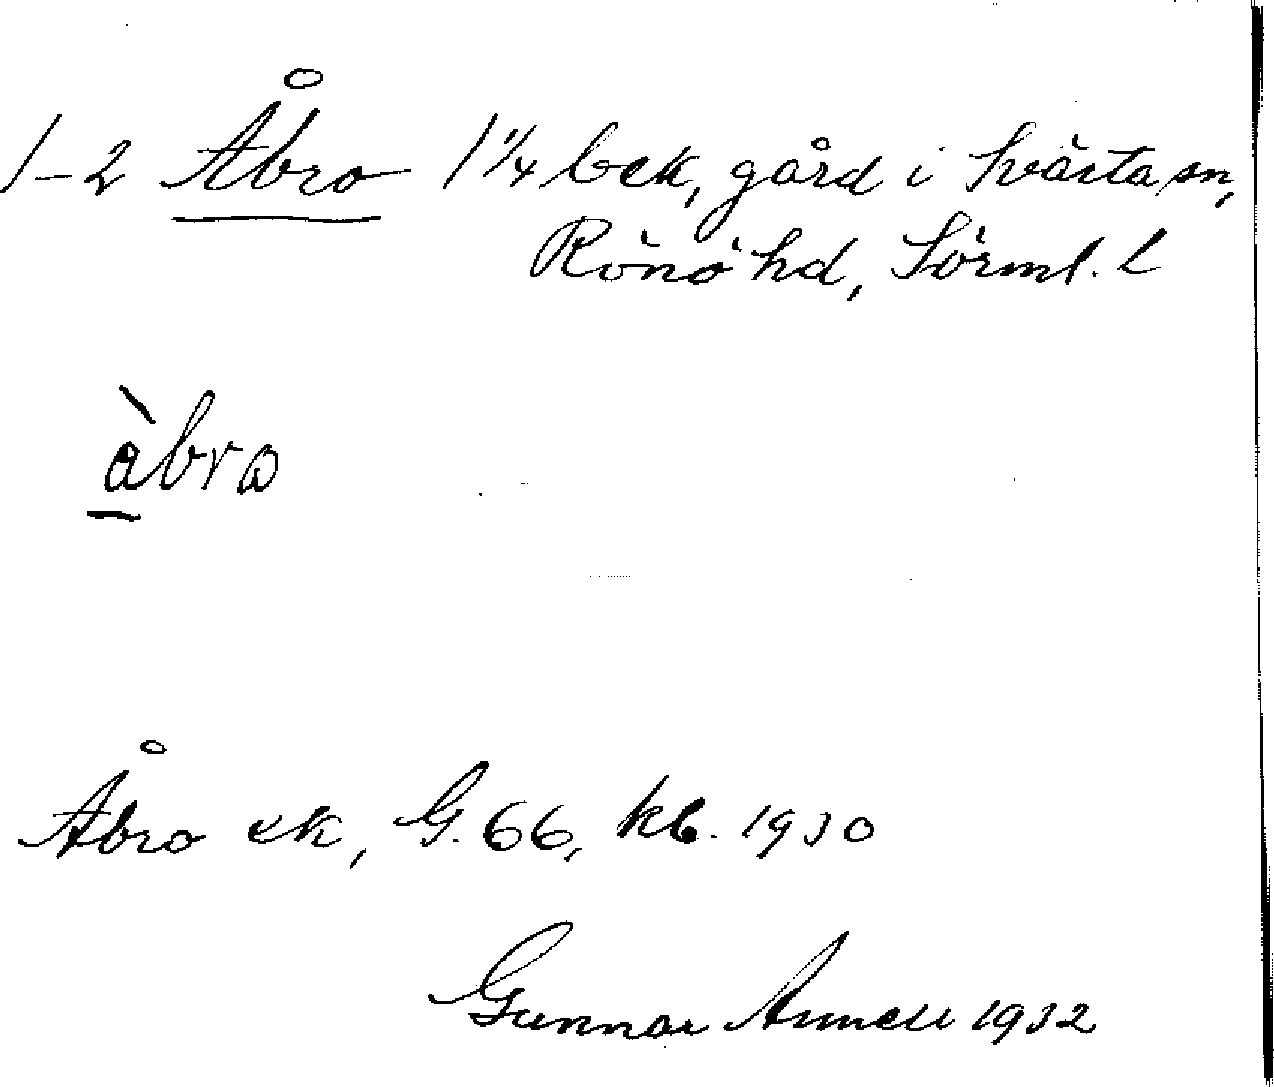 1-2 Åbro 1 1/4 bek, gård i Svärta sn,
Rönö hd, Sörml. l
àbro
Åbro ek, G. 66, kb. 1930
Gunnar Annell 1932